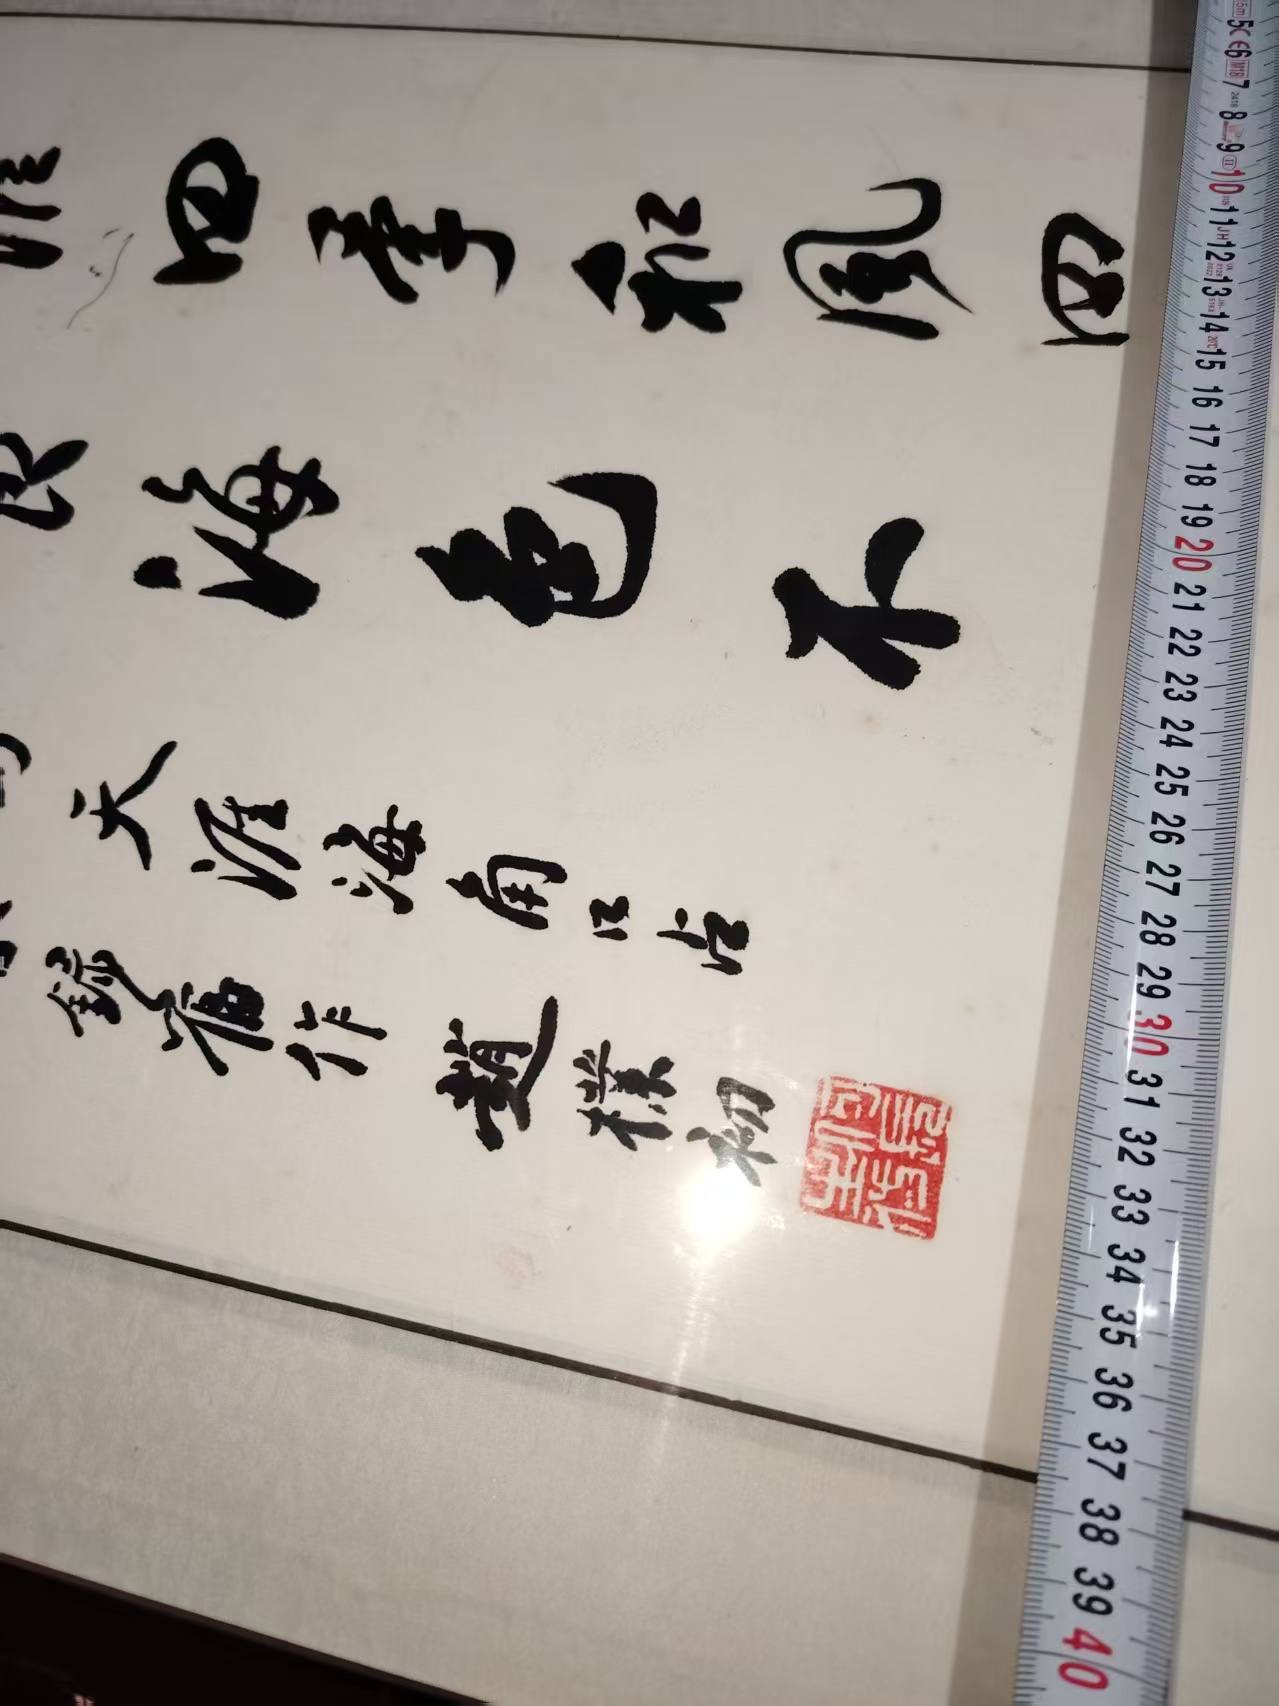 四季和風四
海色不
天涯海角口占
錄舊作 趙樸初
5 6 7 8 9 10 11 12 13 14 15 16 17 18 19 20 21 22 23 24 25 26 27 28 29 30 31 32 33 34 35 36 37 38 39 40